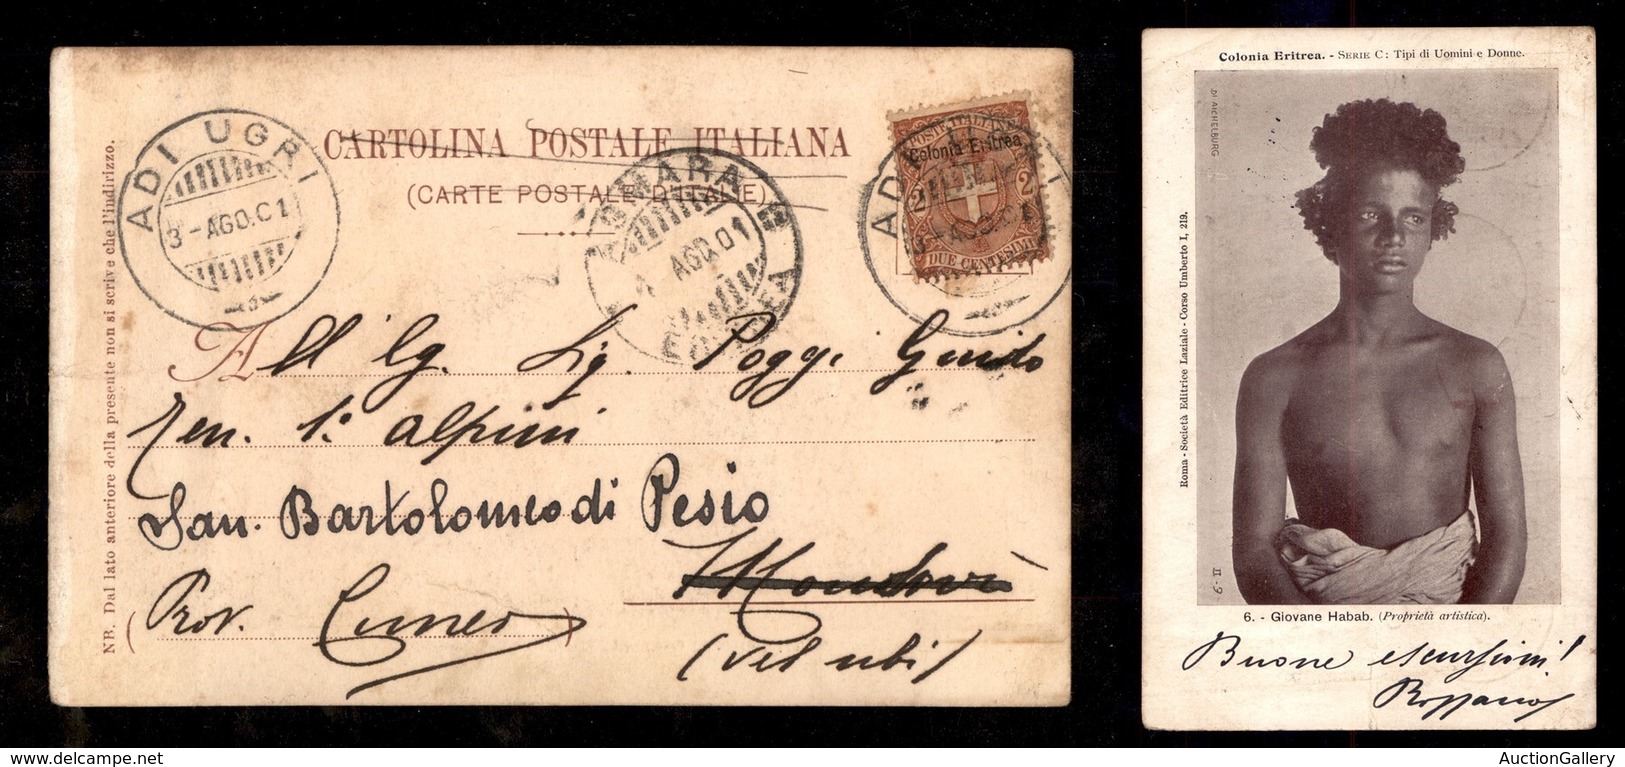 ADI UGRI
3-AGO.01
CARTOLINA POSTALE ITALIANA
(CARTE POSTALE D'ITALIE)
ASMARA
4 AGO.01
ERITREA
POSTE ITALIANE
Colonia Eritrea
2 2
DUE CENTESIMI
ADI UGRI
3-AGO.01
NB. Dal lato anteriore della presente non si scrive che l'indirizzo.
All Sig. Poggi Guido
Ten. 1° Alpini
San. Bartolomeo di Pesio
Mondovì
Prov. (Cuneo)
(vel ubi)
Colonia Eritrea. - SERIE C: Tipi di Uomini e Donne.
DI AICHELBURG
Roma - Società Editrice Laziale - Corso Umberto I, 219.
II - 9
6. - Giovane Habab. (Proprietà artistica).
Buone escursioni!
AuctionGallery